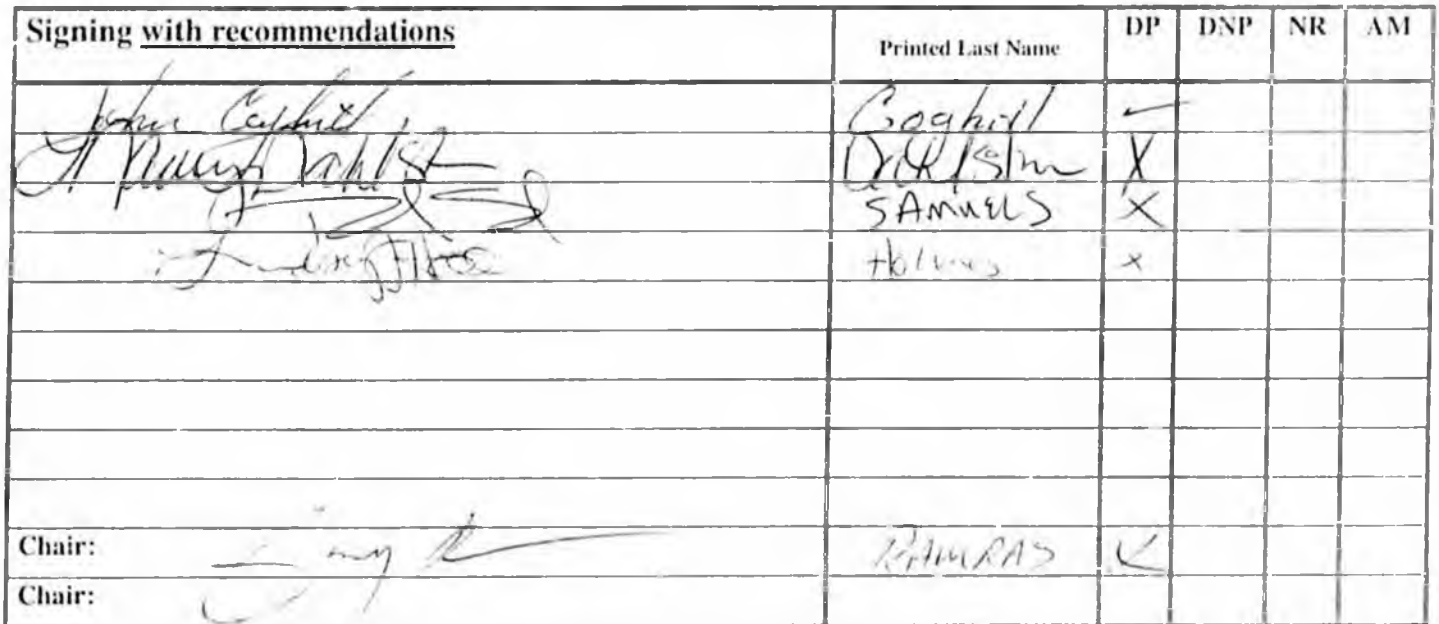 Signing with recommendations Printed Last Name DP DNP NR AM
John Coghill Coghill ✓
Dahlstrom X
SAMUELS X
Holmes x
Chair: RAMRAS ✓
Chair: